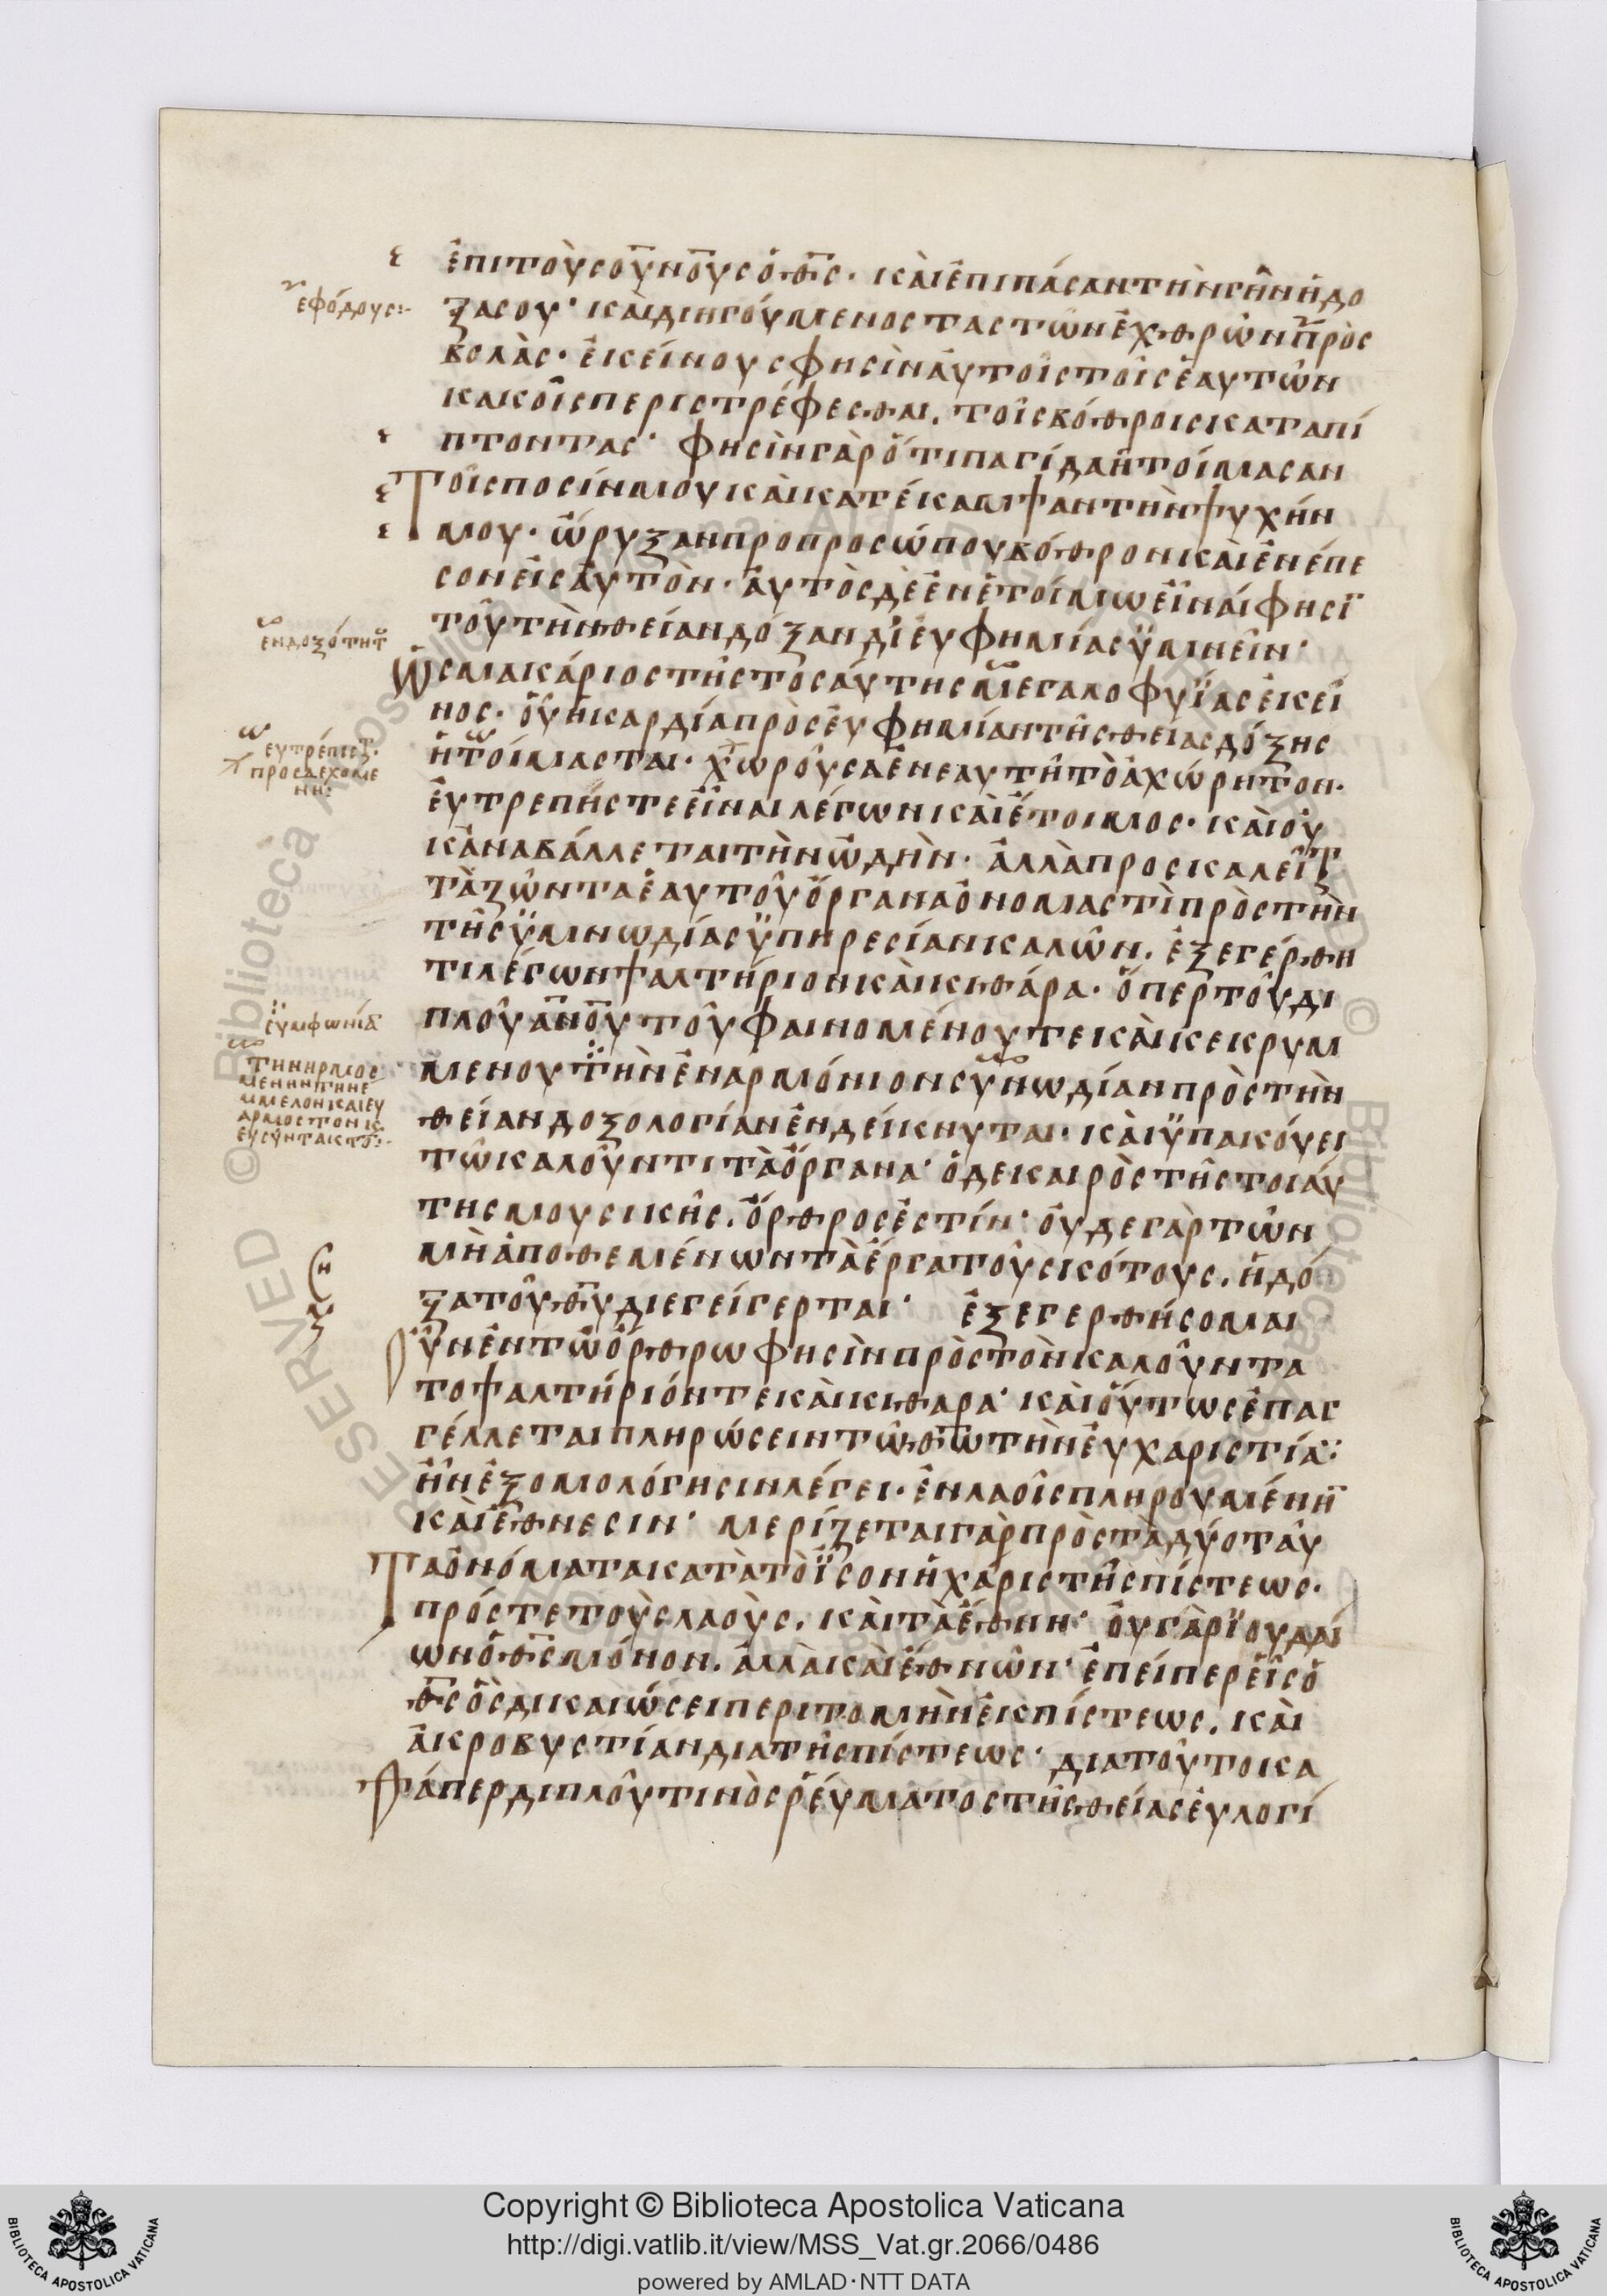 ἐπὶ τοὺς οὐνοὺς ὁ θς· καὶ ἐπὶ πάσαν τὴν γῆν ἡ δό
ἐφόδους:-
ξα σου· καὶ διηγούμενος τας τῶν ἐχθρῶν προσ
βολὰς· ἐκείνους φησὶν αὐτοῖς τοῖς ἑαυτῶν
κακοῖς περιστρέφεσθαι, τοῖς βόθροις καταπί
πτοντας· φησὶν γὰρ ὅτι παγίδα ἡτοίμασαν
Τοῖς ποσίν μου καὶ κατέκαμψαν τὴν ψυχήν
μου· ὤρυξαν προ προσώπου βόθρον καὶ ἐνέπε
σον εἰς αὐτὸν· αὐτὸς δὲ ἐν ἑτοίμω εἶναί φησῖ
τοῦ τὴν θείαν δόξαν δι' εὐφημίας ὑμνεῖν·
ἐνδοξότητ
Ὡς μακάριος τῆς τοσαύτης μεγαλοφυΐας ἐκεῖ
νος· οὗ ἡ καρδία πρὸς εὐφημίαν τῆς θείας δόξης
εὐτρέπιστ·
ἡτοίμασται· χωροῦσα ἐν εαυτῆ τὸ ἀχώρητον·
προσδεχομε
νη:
εὐτρεπής τε εἶναι λέγων καὶ ἕτοιμος· καὶ οὐ
κ ἀναβάλλεται τὴν ὠδὴν· ἀλλὰ προσκαλεῖτ
τὰ ζῶντα ἑαυτοῦ ὄργανα ὀνομαστὶ πρὸς τὴν
τῆς ὑμνωδίας ὑπηρεσίαν καλῶν, ἐξεγέρθη
τι λέγων ψαλτήριον καὶ κιθάρα· ὅπερ τοῦ δι
συμφωνίᾱ
πλοῦ ανου τοῦ φαινομένου τε καὶ κεκρυμ
τὴν ἡρμοσ
μένην τὴν ἐ
μμελον καὶ εὐ
αρμοστον κ
εὐσύντακτο:-
μένου τὴν ἐναρμόνιον συνωδίαν πρὸς τὴν
θείαν δοξολογίαν ἐνδείκνυται· καὶ ὑπακούει
τῶ καλοῦντι τὰ ὄργανα· ὁ δε καιρὸς τῆς τοιαύ
της μουσικῆς, ὄρθρος ἐστίν· οὐδε γὰρ τῶν
μὴ ἀποθεμένων τὰ ἔργα τοῦ σκότους, ἡ δό
ξα τοῦ θυ διεγείγερται· ἐξεγερθήσομαι
οὖν ἐν τῶ ὄρθρω φησὶν πρὸς τὸν καλοῦντα
το ψαλτήριόν τε καὶ κιθαρα· καὶ οὕτως ἐπαγ
γέλλεται πληρώσειν τῶ θω τὴν εὐχαριστίᾱ:
ἣν ἐξομολόγησιν λέγει· ἐν λαοῖς πληρουμένη
καὶ ἔθνεσιν· μερίζεται γὰρ πρὸς τὰ δύο ταῦ
Τα ὀνόματα κατὰ τὸ ἴσον ἡ χάρις τῆς πίστεως·
πρός τε τοὺς λαοὺς, καὶ τὰ ἔθνη· οὐ γὰρ ἰουδαί
ων ὁ θς μόνον, ἀλλὰ καὶ ἐθνῶν· ἐπείπερ εἷς ὁ
θς ὃς δικαιώσει περιτομὴν ἐκ πίστεως, καὶ
ἀκροβυστίαν δια τῆς πίστεως· δια τοῦτο κα
θάπερ διπλοῦ τινὸς ῥεύματος τῆς θείας εὐλογί
Copyright © Biblioteca Apostolica Vaticana
http://digi.vatlib.it/view/MSS_Vat.gr.2066/0486
powered by AMLAD·NTT DATA
BIBLIOTECA APOSTOLICA VATICANA
BIBLIOTECA APOSTOLICA VATICANA